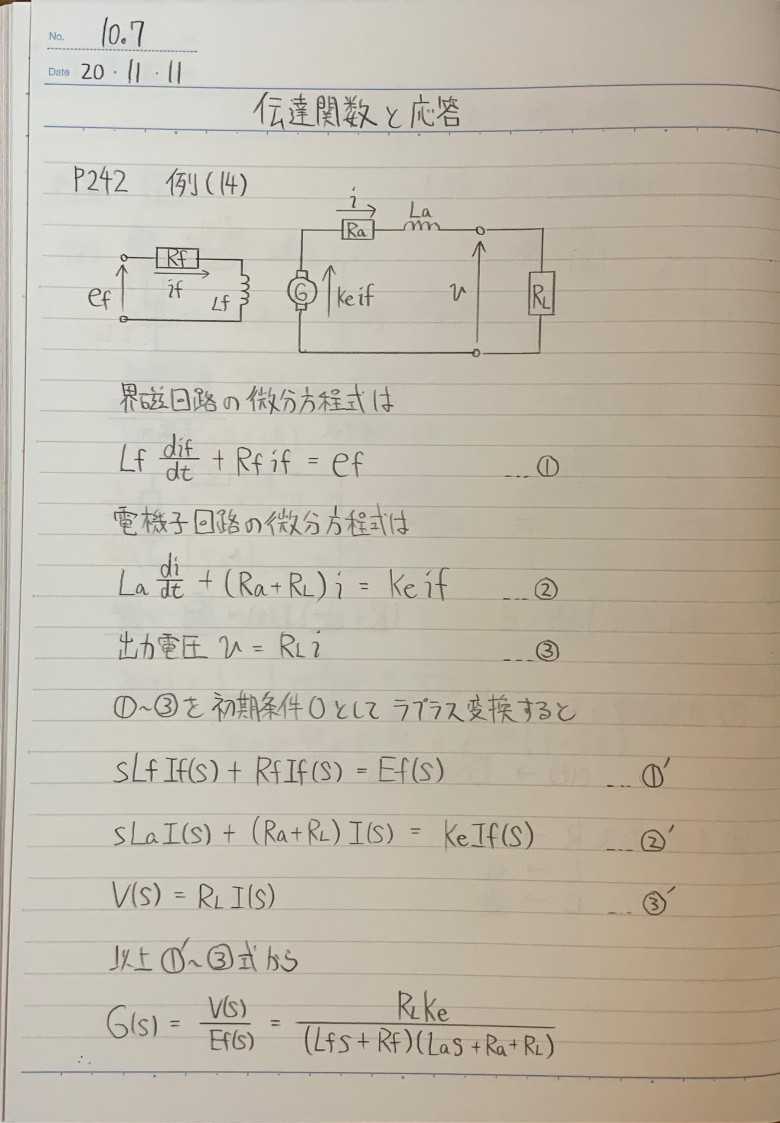 No. 10.7
Date 20・11・11
伝達関数と応答
P242 例(14)
i
La
Ra
Rf
if
Lf
ef
G
keif
v
RL
界磁回路の微分方程式は
Lf dif/dt + Rf if = ef ---①
電機子回路の微分方程式は
La di/dt + (Ra+RL) i = ke if ---②
出力電圧 v = RL i ---③
①~③を初期条件0としてラプラス変換すると
sLf If(s) + Rf If(s) = Ef(s) ---①'
sLa I(s) + (Ra+RL) I(s) = ke If(s) ---②'
V(s) = RL I(s) ---③'
以上①'~③式から
G(s) = V(s)/Ef(s) = RL ke/(Lf s + Rf)(La s + Ra + RL)